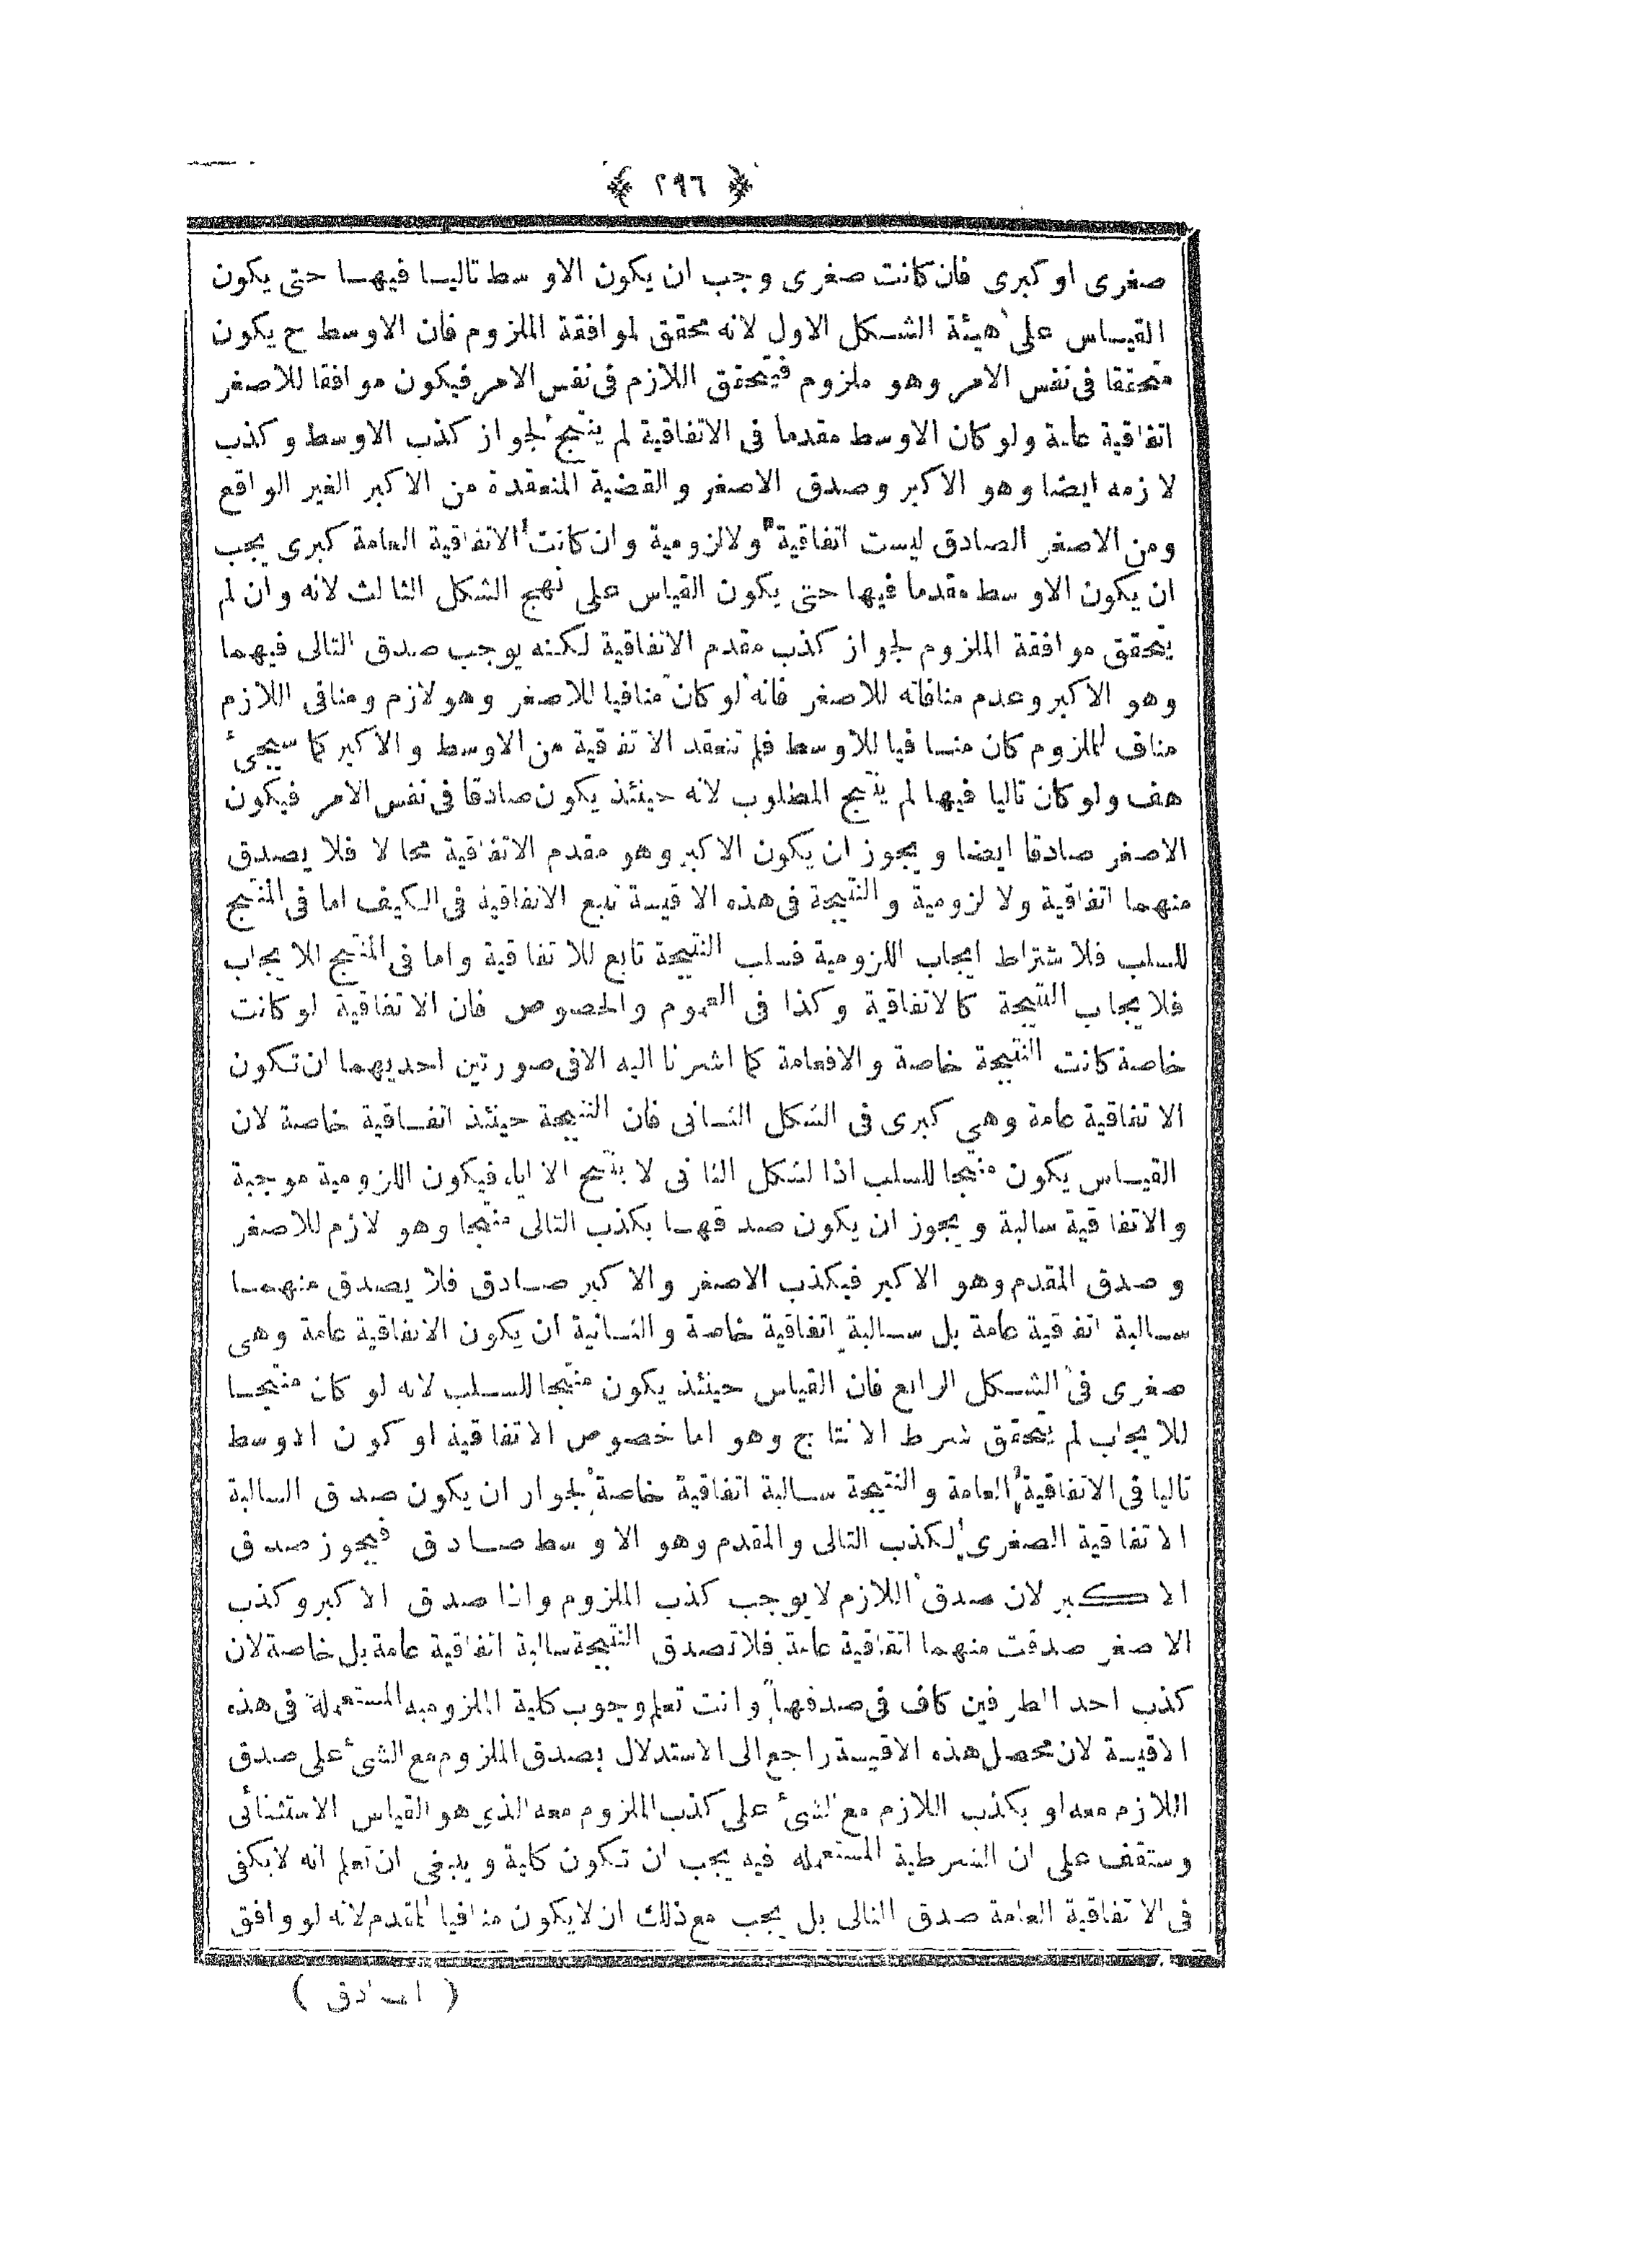 ﴿ ٢٩٦ ﴾
صغرى او كبرى فان كانت صغرى وجب ان يكون الاوسط تاليا فيها حتى يكون
القياس على هيئة الشكل الاول لانه محقق لموافقة الملزوم فان الاوسط ح يكون
متحققا فى نفس الامر وهو ملزوم فيتحقق اللازم فى نفس الامر فيكون موافقا للاصغر
اتفاقية عامة ولو كان الاوسط مقدما فى الاتفاقية لم ينتج لجواز كذب الاوسط وكذب
لازمه ايضا وهو الاكبر وصدق الاصغر والقضية المنعقدة من الاكبر الغير الواقع
ومن الاصغر الصادق ليست اتفاقية ولالزومية وان كانت الاتفاقية العامة كبرى يجب
ان يكون الاوسط مقدما فيها حتى يكون القياس على نهج الشكل الثالث لانه وان لم
يتحقق موافقة الملزوم لجواز كذب مقدم الاتفاقية لكنه يوجب صدق التالى فيهما
وهو الاكبر وعدم منافاته للاصغر فانه لو كان منافيا للاصغر وهو لازم ومنافى اللازم
مناف للملزوم كان منافيا للاوسط فلم تنعقد الاتفاقية من الاوسط والاكبر كما سيجىء
هف ولو كان تاليا فيها لم ينتج المطلوب لانه حينئذ يكون صادقا فى نفس الامر فيكون
الاصغر صادقا ايضا ويجوز ان يكون الاكبر وهو مقدم الاتفاقية محالا فلا يصدق
منهما اتفاقية ولا لزومية والنتيجة فى هذه الاقيسة تتبع الاتفاقية فى الكيف اما فى المنتج
للسلب فلاشتراط ايجاب اللزومية فسلب النتيجة تابع للاتفاقية واما فى المنتج للايجاب
فلايجاب النتيجة كالاتفاقية وكذا فى العموم والخصوص فان الاتفاقية لو كانت
خاصة كانت النتيجة خاصة والافعامة كما اشرنا اليه الافى صورتين احديهما ان تكون
الاتفاقية عامة وهى كبرى فى الشكل الثانى فان النتيجة حينئذ اتفاقية خاصة لان
القياس يكون منتجا للسلب اذا لشكل الثانى لا ينتج الا اياه فيكون اللزومية موجبة
والاتفاقية سالبة ويجوز ان يكون صدقها بكذب التالى منتجا وهو لازم للاصغر
وصدق المقدم وهو الاكبر فيكذب الاصغر والاكبر صادق فلا يصدق منهما
سالبة اتفاقية عامة بل سالبة اتفاقية خاصة والثانية ان يكون الاتفاقية عامة وهى
صغرى فى الشكل الرابع فان القياس حينئذ يكون منتجا للسلب لانه لو كان منتجا
للايجاب لم يتحقق شرط الانتاج وهو اما خصوص الاتفاقية او كون الاوسط
تاليا فى الاتفاقية العامة والنتيجة سالبة اتفاقية خاصة لجواز ان يكون صدق السالبة
الاتفاقية الصغرى لكذب التالى والمقدم وهو الاوسط صادق فيجوز صدق
الاكبر لان صدق اللازم لايوجب كذب الملزوم واذا صدق الاكبر وكذب
الاصغر صدقت منهما اتفاقية عامة فلاتصدق النتيجة سالبة اتفاقية عامة بل خاصة لان
كذب احد الطرفين كاف فى صدقها وانت تعلم وجوب كلية الملزومية المستعملة فى هذه
الاقيسة لان محصل هذه الاقيسة راجع الى الاستدلال بصدق الملزوم مع الشىء على صدق
اللازم معه او بكذب اللازم مع الشىء على كذب الملزوم معه الذى هو القياس الاستثنائى
وستقف على ان الشرطية المستعمله فيه يجب ان تكون كلية وينبغى ان تعلم انه لايكفى
فى الاتفاقية العامة صدق التالى بل يجب مع ذلك ان لايكون منافيا للمقدم لانه لو وافق